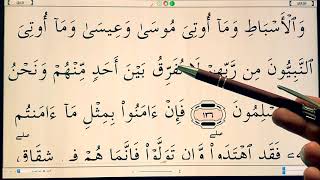 وَٱلْأَسْبَاطِ وَمَآ أُوتِىَ مُوسَىٰ وَعِيسَىٰ وَمَآ أُوتِىَ
ٱلنَّبِيُّونَ مِن رَّبِّهِمْ لَا نُفَرِّقُ بَيْنَ أَحَدٍ مِّنْهُمْ وَنَحْنُ
مُسْلِمُونَ ١٣٦ فَإِنْ ءَامَنُوا۟ بِمِثْلِ مَآ ءَامَنتُم
فَقَدِ ٱهْتَدَوا۟ۖ وَّإِن تَوَلَّوْا۟ فَإِنَّمَا هُمْ فِى شِقَاقٍۖ